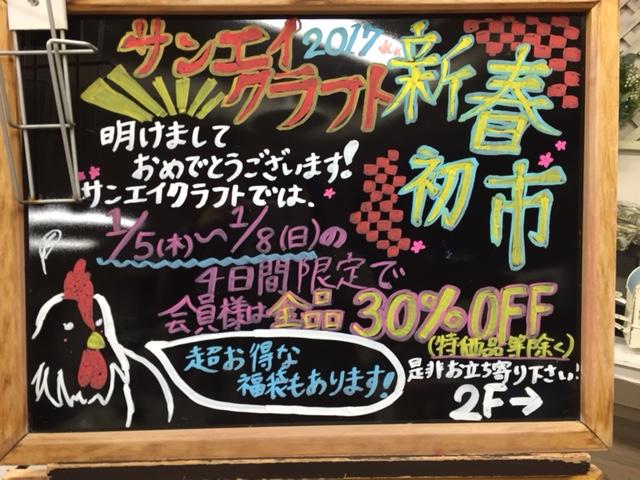 サンエイクラフト
2017
新春初市
明けまして
おめでとうございます!
サンエイクラフトでは、
1/5(木)〜1/8(日)の
4日間限定で
会員様は全品30%OFF
(特価品等除く)
超お得な
福袋もあります!
是非お立ち寄り下さい!
2F→